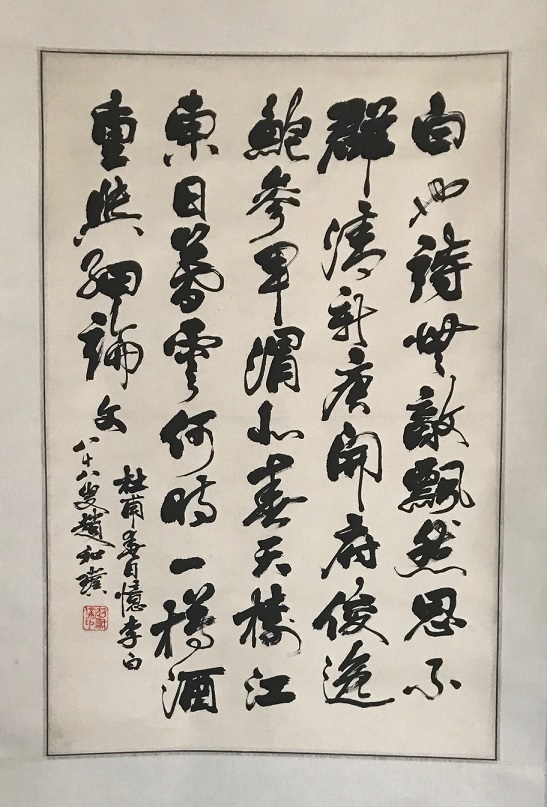 白也詩無敵飄然思不
群清新庾開府俊逸
鮑參軍渭北春天樹江
東日暮雲何時一樽酒
重與細論文
杜甫春日憶李白
八十八叟趙和璞